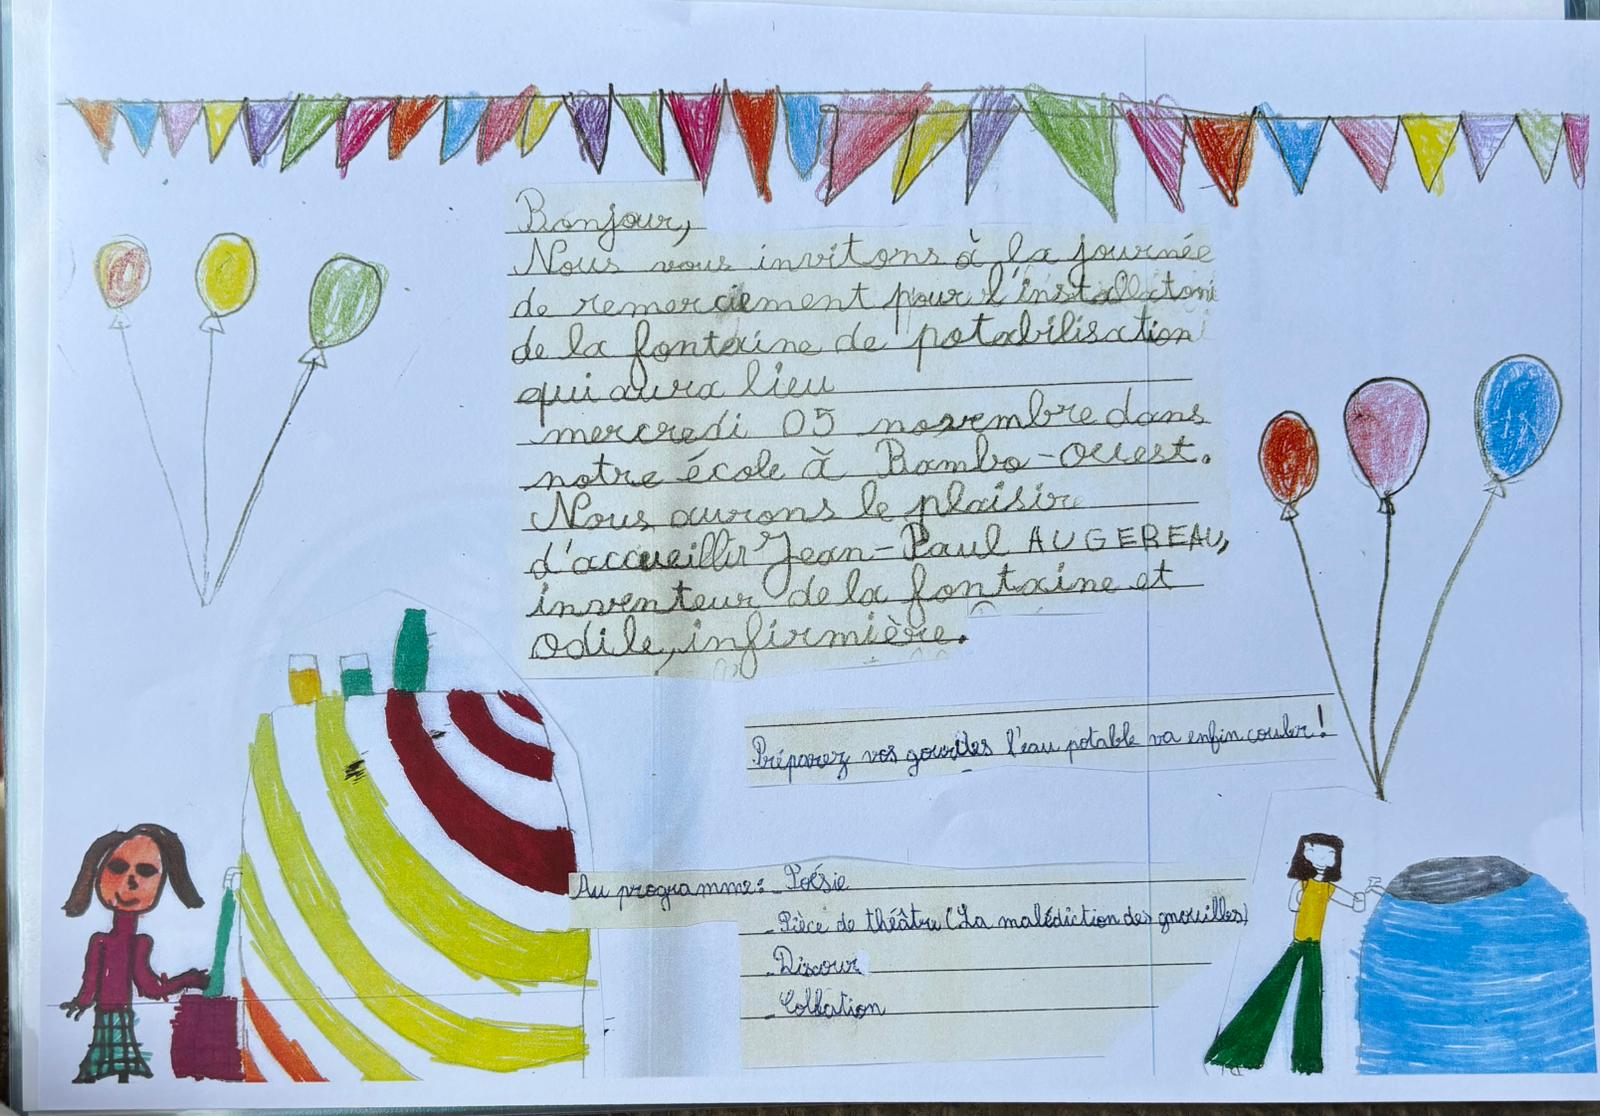 Bonjour,
Nous vous invitons à la journée
de remerciement pour l'installation
de la fontaine de potabilisation
qui aura lieu
mercredi 05 novembre dans
notre école à Bambo-Ouest.
Nous aurons le plaisir
d'accueillir Jean-Paul AUGEREAU,
inventeur de la fontaine et
odile, infirmière.
Préparez vos gourdes l'eau potable va enfin couler!
Au programme: - Poésie
- Pièce de théâtre (La malédiction des gnouilles)
- Discour
- Collation